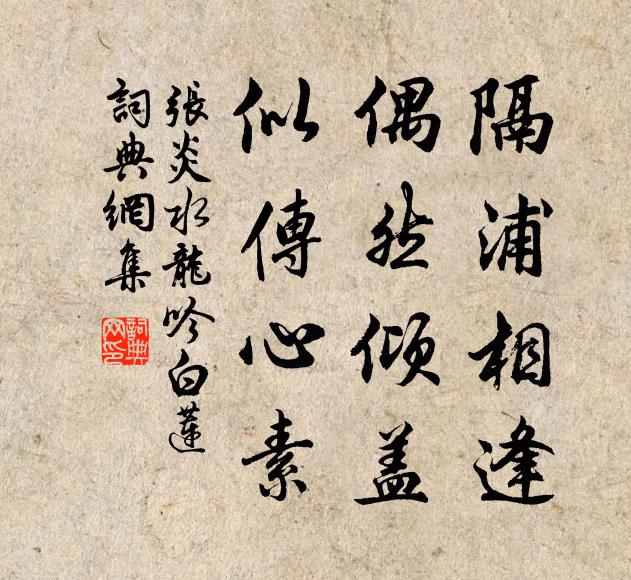 隔浦相逢
偶然傾盖
似傳心素
張炎水龍吟白蓮
詞典網集
詞典網印